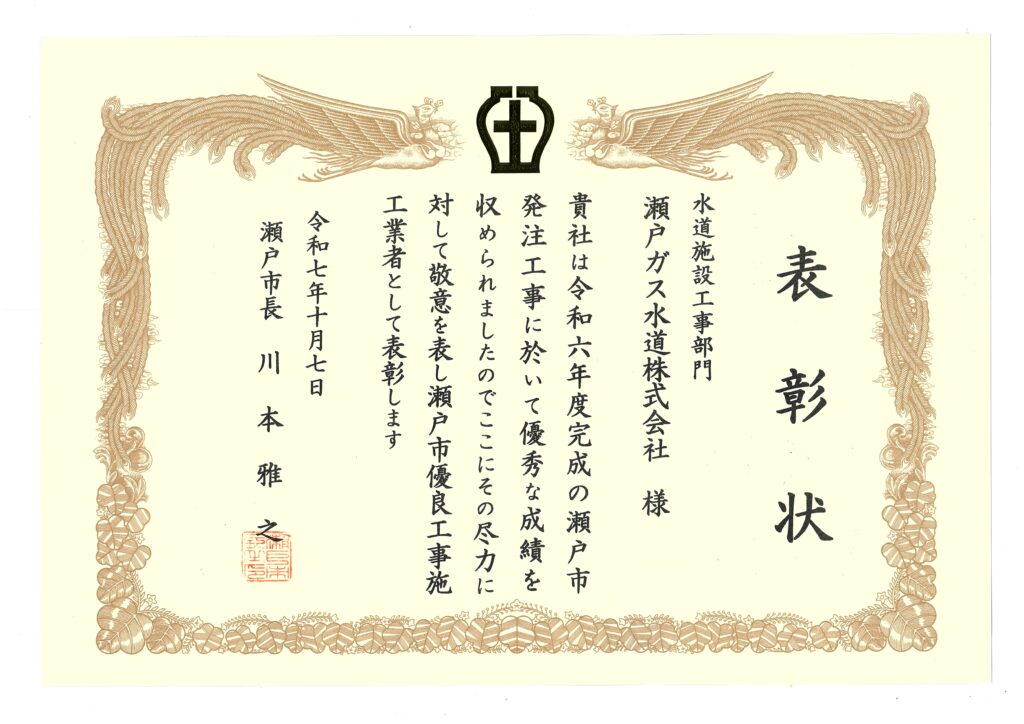 表彰状
水道施設工事部門
瀬戸ガス水道株式会社 様
貴社は令和六年度完成の瀬戸市
発注工事に於いて優秀な成績を
収められましたのでここにその尽力に
対して敬意を表し瀬戸市優良工事施
工業者として表彰します
令和七年十月七日
瀬戸市長 川本雅之